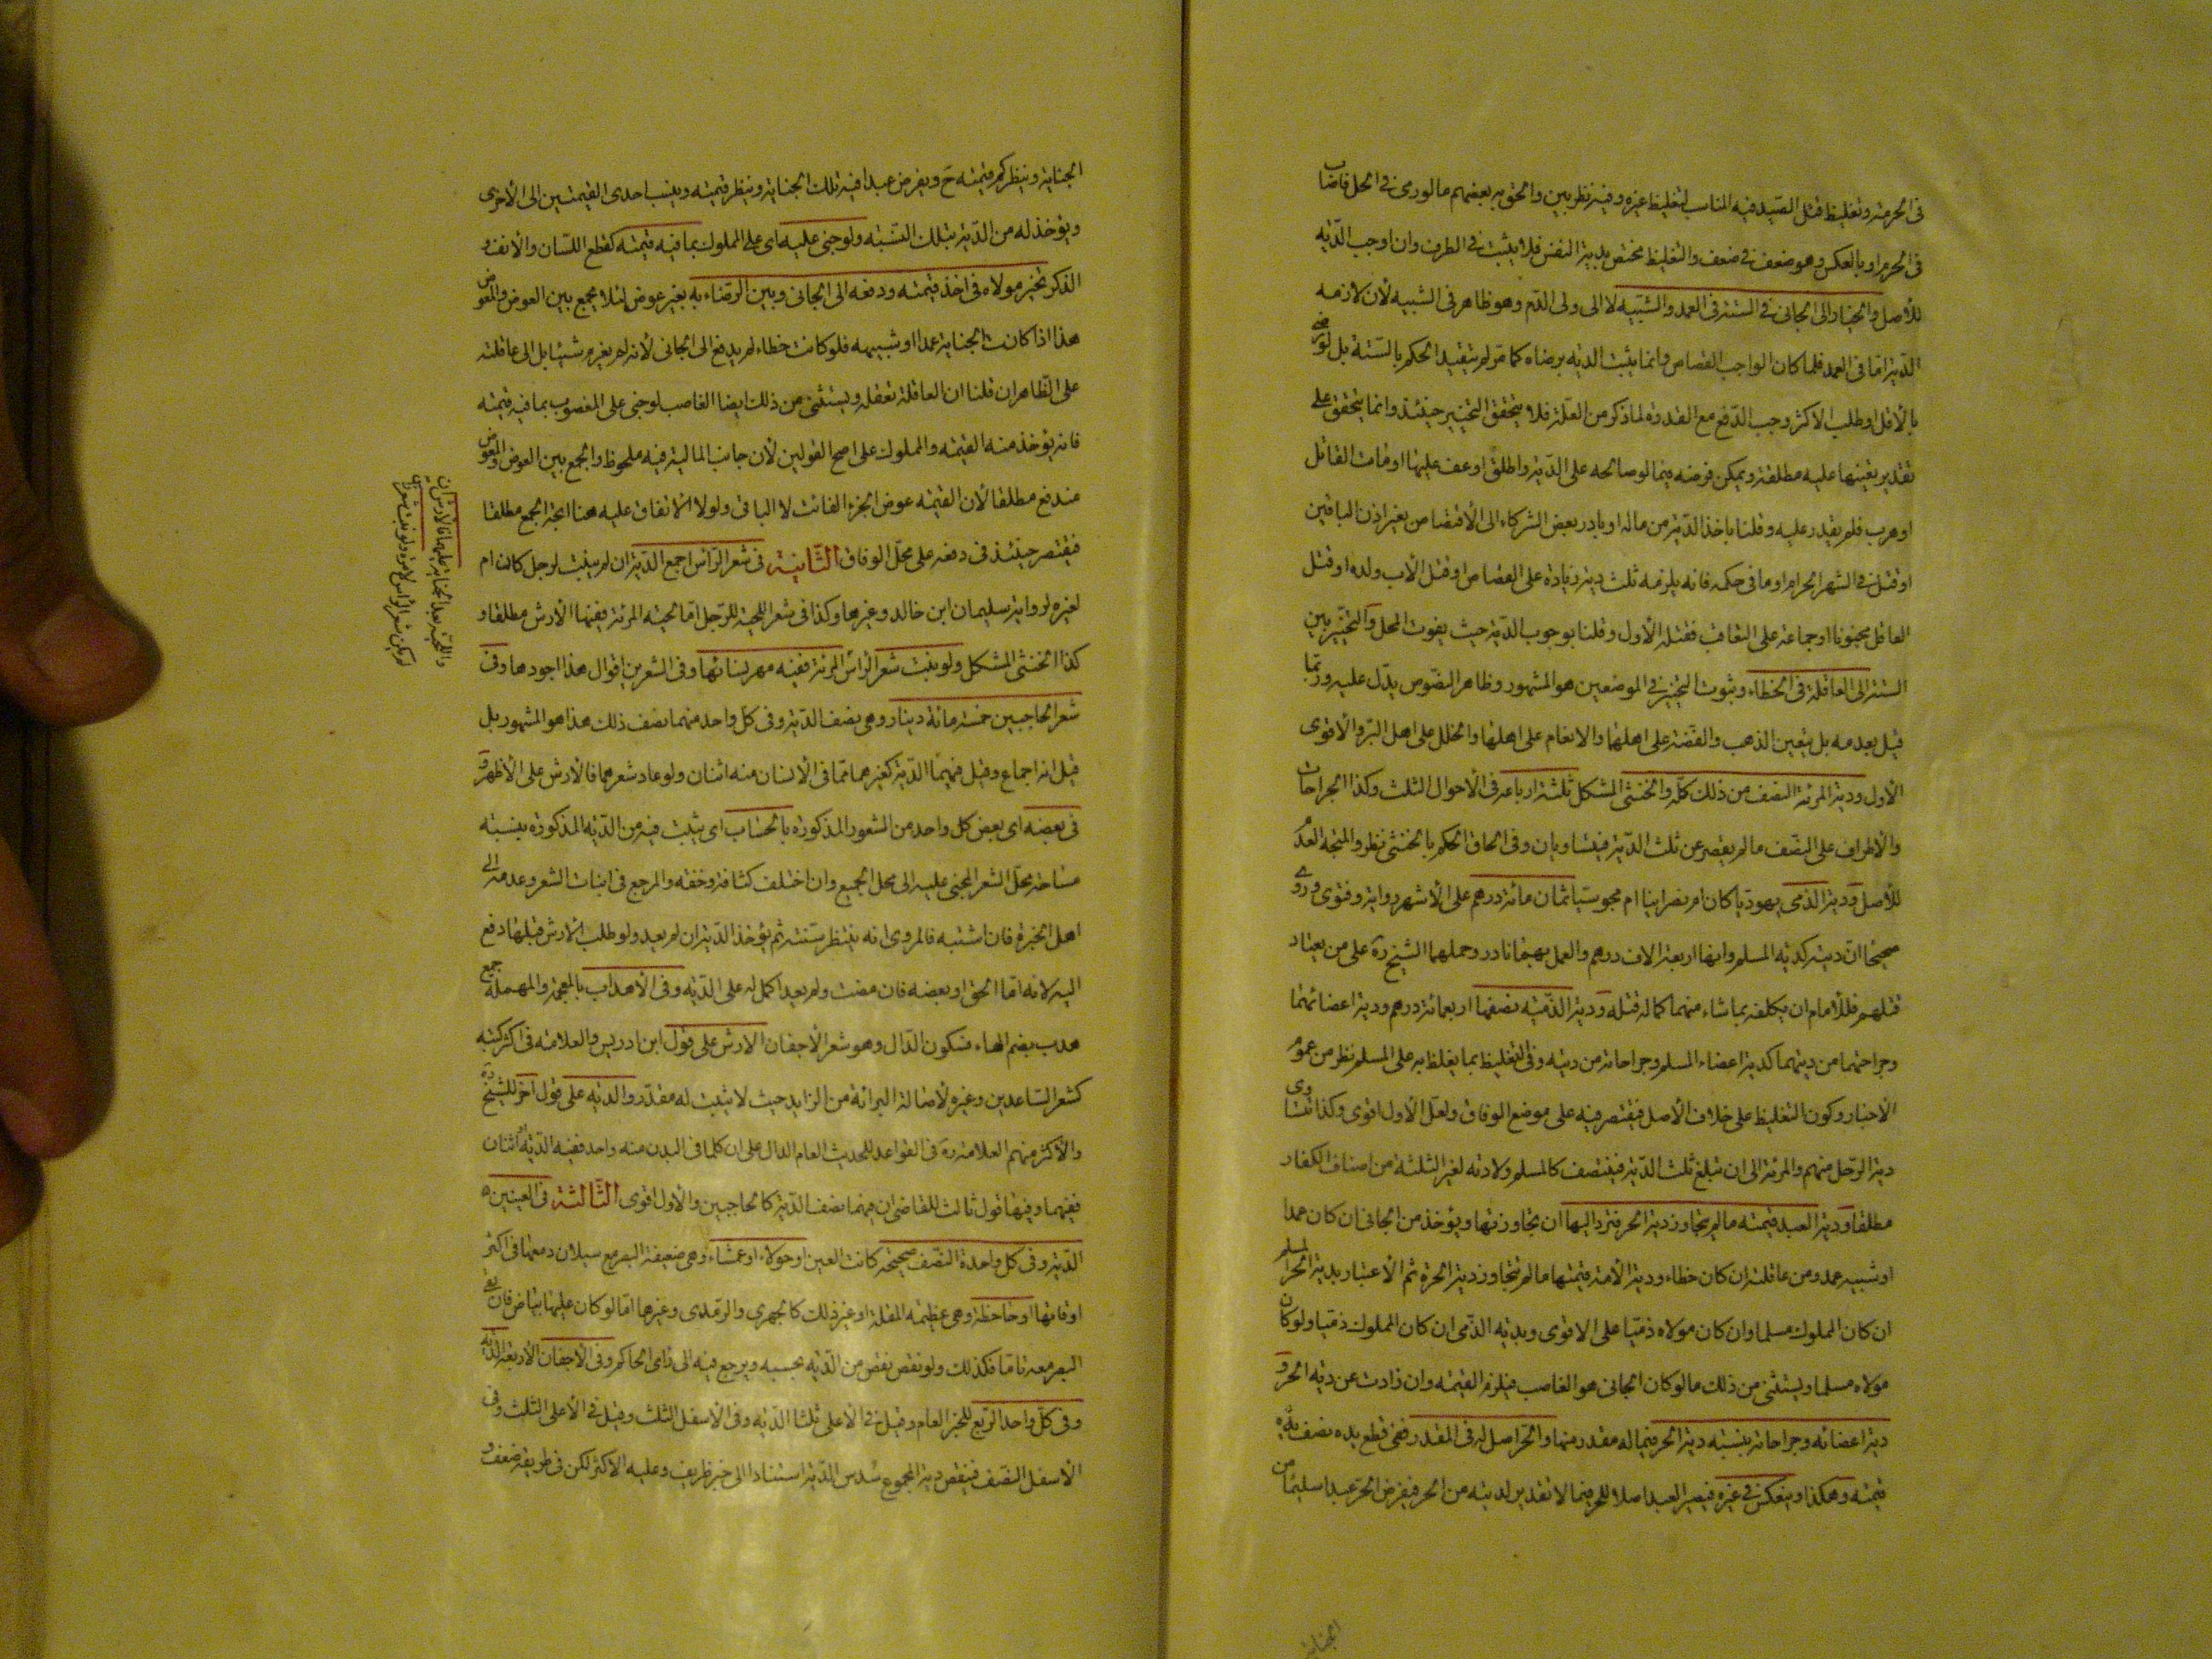 فى الحرمة وتغليظ قتل الصيد فيه المناسب لتغليظ غيره وفيه نظر بين والحق به بعضهم ما لو رمى فى الحل فاصاب
فى الحرم او بالعكس وهو ضعف فى ضعف والتغليظ مختص بدية النفس فلا يثبت فى الطرف وان اوجب الدية
للأصل والخيار الى الجانى فى الستة فى العمد والشبيه لا الى ولى الدم وهو ظاهر فى الشبيه لأن لازمه
الدية اما فى العمد فلما كان الواجب القصاص وانما يثبت الدية برضاه كما مر لم يتقيد الحكم بالستة بل لو رضى
بالأقل او طلب الأكثر وجب الدفع مع القدرة لما ذكر من العلة فلا يتحقق التخيير حينئذ وانما يتحقق على
تقدير تعينها عليه مطلقة ويمكن فرضه فيما لو صالحه على الدية واطلق او عفى عليها او مات القاتل
او هرب فلم يقدر عليه وقلنا باخذ الدية من ماله او بادر بعض الشركاء الى الأقتصاص بغير اذن الباقين
او قتل فى الشهر الحرام او ما فى حكمه فانه يلزمه ثلث دية زيادة على القصاص او قتل الأب ولده او قتل
العاقل مجنونا او جماعة على التعاقب فقتله الأول وقلنا بوجوب الدية حيث يفوت المحل والتخيير بين
الستة الى العاقلة فى الخطاء وثبوت التخيير فى الموضعين هو المشهور وظاهر النصوص يدل عليه وربما
قيل بعدمه بل يتعين الذهب والفضة على اهلها والانعام على اهلها والحلل على اهل البر والأقوى
الأول ودية المرئة النصف من ذلك كله والخنثى المشكل ثلثة ارباعه فى الأحوال الثلث وكذا الجراحات
والأطراف على النصف ما لم يقصر عن ثلث الدية فيتساويان وفى الحاق الحكم بالخنثى نظر والمتجه العدم
للأصل ودية الذمى يهوديا كان ام نصرانيا ام مجوسيا ثمان مائة درهم على الأشهر رواية وفتوى وروى
صحيحا ان ديته كدية المسلم وانها اربعة الاف درهم والعمل بهما نادر وحملهما الشيخ ره على من يعتاد
قتلهم فللأمام ان يكلفه بما شاء منهما كما له قتله ودية الذمية نصفها اربعمائة درهم ودية اعضائهما
وجراحتهما من ديتهما كدية اعضاء المسلم وجراحاته من ديته وفى التغليظ بما يغلظ به على المسلم نظر من عموم
الأخبار وكون التغليظ على خلاف الأصل فيقتصر فيه على موضع الوفاق ولعل الأول اقوى وكذا تتساوى
دية الرجل منهم والمرئة الى ان تبلغ ثلث الدية فينتصف كالمسلم ولا دية لغير الثلثة من اصناف الكفار
مطلقا ودية العبد قيمته ما لم يتجاوز دية الحر فترد اليها ان تجاوزتها ويؤخذ من الجانى ان كان عمدا
او شبيه عمد ومن عاقلته ان كان خطاء ودية الأمة قيمتها ما لم تتجاوز دية الحرة ثم الأعتبار بدية الحر المسلم
ان كان المملوك مسلما وان كان مولاه ذميا على الاقوى وبدية الذمى ان كان المملوك ذميا ولو كان
مولاه مسلما ويستثنى من ذلك ما لو كان الجانى هو الغاصب فيلزم القيمة وان زادت عن دية الحر و
دية اعضائه وجراحاته بنسبة دية الحر فيما له مقدر منها والحر اصل له فى المقدر ففى قطع يده نصف
قيمته وهكذا وينعكس فى غيره فيصير العبد اصلا للحر فيما لا تقدير لديته من الحر فيفرض الحر عبدا سليما من
الجناية
الجناية وينظر كم قيمته ح ويفرض عبدا فيه تلك الجناية وينظر قيمته وينسب احدى القيمتين الى الأخرى
ويؤخذ له من الدية بتلك النسبة ولو جنى عليه اى على المملوك بما فيه قيمته كقطع اللسان والأنف و
الذكر تخير مولاه فى اخذ قيمته ودفعه الى الجانى وبين الرضاء به بغير عوض لئلا يجمع بين العوض والمعوض
هذا اذا كانت الجناية عمدا او شبيهه فلو كانت خطاء لم يدفع الى الجانى لأنه لم يغرم شيئا بل الى عاقلته
على الظاهر ان قلنا ان العاقلة تعقله ويستثنى من ذلك ايضا الغاصب لو جنى على المغصوب بما فيه قيمته
فانه يؤخذ منه القيمة والمملوك على اصح القولين لأن جانب المالية فيه ملحوظ والجمع بين العوض والمعوض
مندفع مطلقا لأن القيمة عوض الجزء الفائت لا الباقى ولولا الأتفاق عليه هنا اتجه الجمع مطلقا
فيقتصر حينئذ فى دفعه على محل الوفاق الثانية فى شعر الرأس اجمع الدية ان لم ينبت لرجل كان ام
لغيره لرواية سليمان ابن خالد وغيرها وكذا فى شعر اللحية للرجل اما لحية المرئة ففيها الأرش مطلقا و
كذا الخنثى المشكل ولو نبت شعر الرأس المرئة ففيه مهر نسائها وفى الشعرين اقوال هذا اجودها وفى
شعر الحاجبين خمسة مائة دينار وهى نصف الدية وفى كل واحد منهما نصف ذلك هذا هو المشهور بل
قيل انه اجماع وقيل فيهما الدية كغيرهما مما فى الأنسان منه اثنان ولو عاد شعرهما فالأرش على الأظهر و
فى بعضه اى بعض كل واحد من الشعور المذكورة بالحساب اى يثبت فيه من الدية المذكورة بنسبة
مساحة محل الشعر المجنى عليه الى محل الجميع وان اختلف كثافة وخفة والمرجع فى انبات الشعر وعدمه الى
اهل الخبرة فان اشتبه فالمروى انه ينتظر سنة ثم يؤخذ الدية ان لم يعد ولو طلب الأرش قبلها دفع
اليه لانه اما الحق او بعضه فان مضت ولم يعد اكمل له على الدية وفى الأهداب بالمعجمة والمهملة جمع
هدب بضم الهاء فسكون الدال وهو شعر الأجفان الأرش على قول ابن ادريس والعلامة فى اكثر كتبه
كشعر الساعدين وغيره لأصالة البرائة من الزايد حيث لا يثبت له مقدر والدية على قول اخر للشيخ ره
والأكثر منهم العلامة ره فى القواعد للحديث العام الدال على ان كلما فى البدن منه واحد ففيه الدية او اثنان
ففيهما وفيها قول ثالث للقاضى ان فيهما نصف الدية كالحاجبين والأول اقوى الثالثة فى العينين
الدية وفى كل واحدة النصف صحيحة كانت العين او حولاء او عمشاء وهى ضعيفة البصر مع سيلان دمعها فى اكثر
اوقاتها او جاحظة وهى عظيمة المقلة او غير ذلك كالجهرى والرمدى وغيرها اما لو كان عليها بياض فان بقى
البصر معه تاما فكذلك ولو نقص نقص من الدية بحسبه ويرجع فيه الى رأى الحاكم وفى الأجفان الأربعة الدية
وفى كل واحد الربع للخبر العام وقيل فى الأعلى ثلثا الدية وفى الأسفل الثلث وقيل فى الأعلى الثلث وفى
الأسفل النصف فينقص دية المجموع سدس الدية استنادا الى خبر ظريف وعليه الاكثر لكن فى طريقه ضعف و